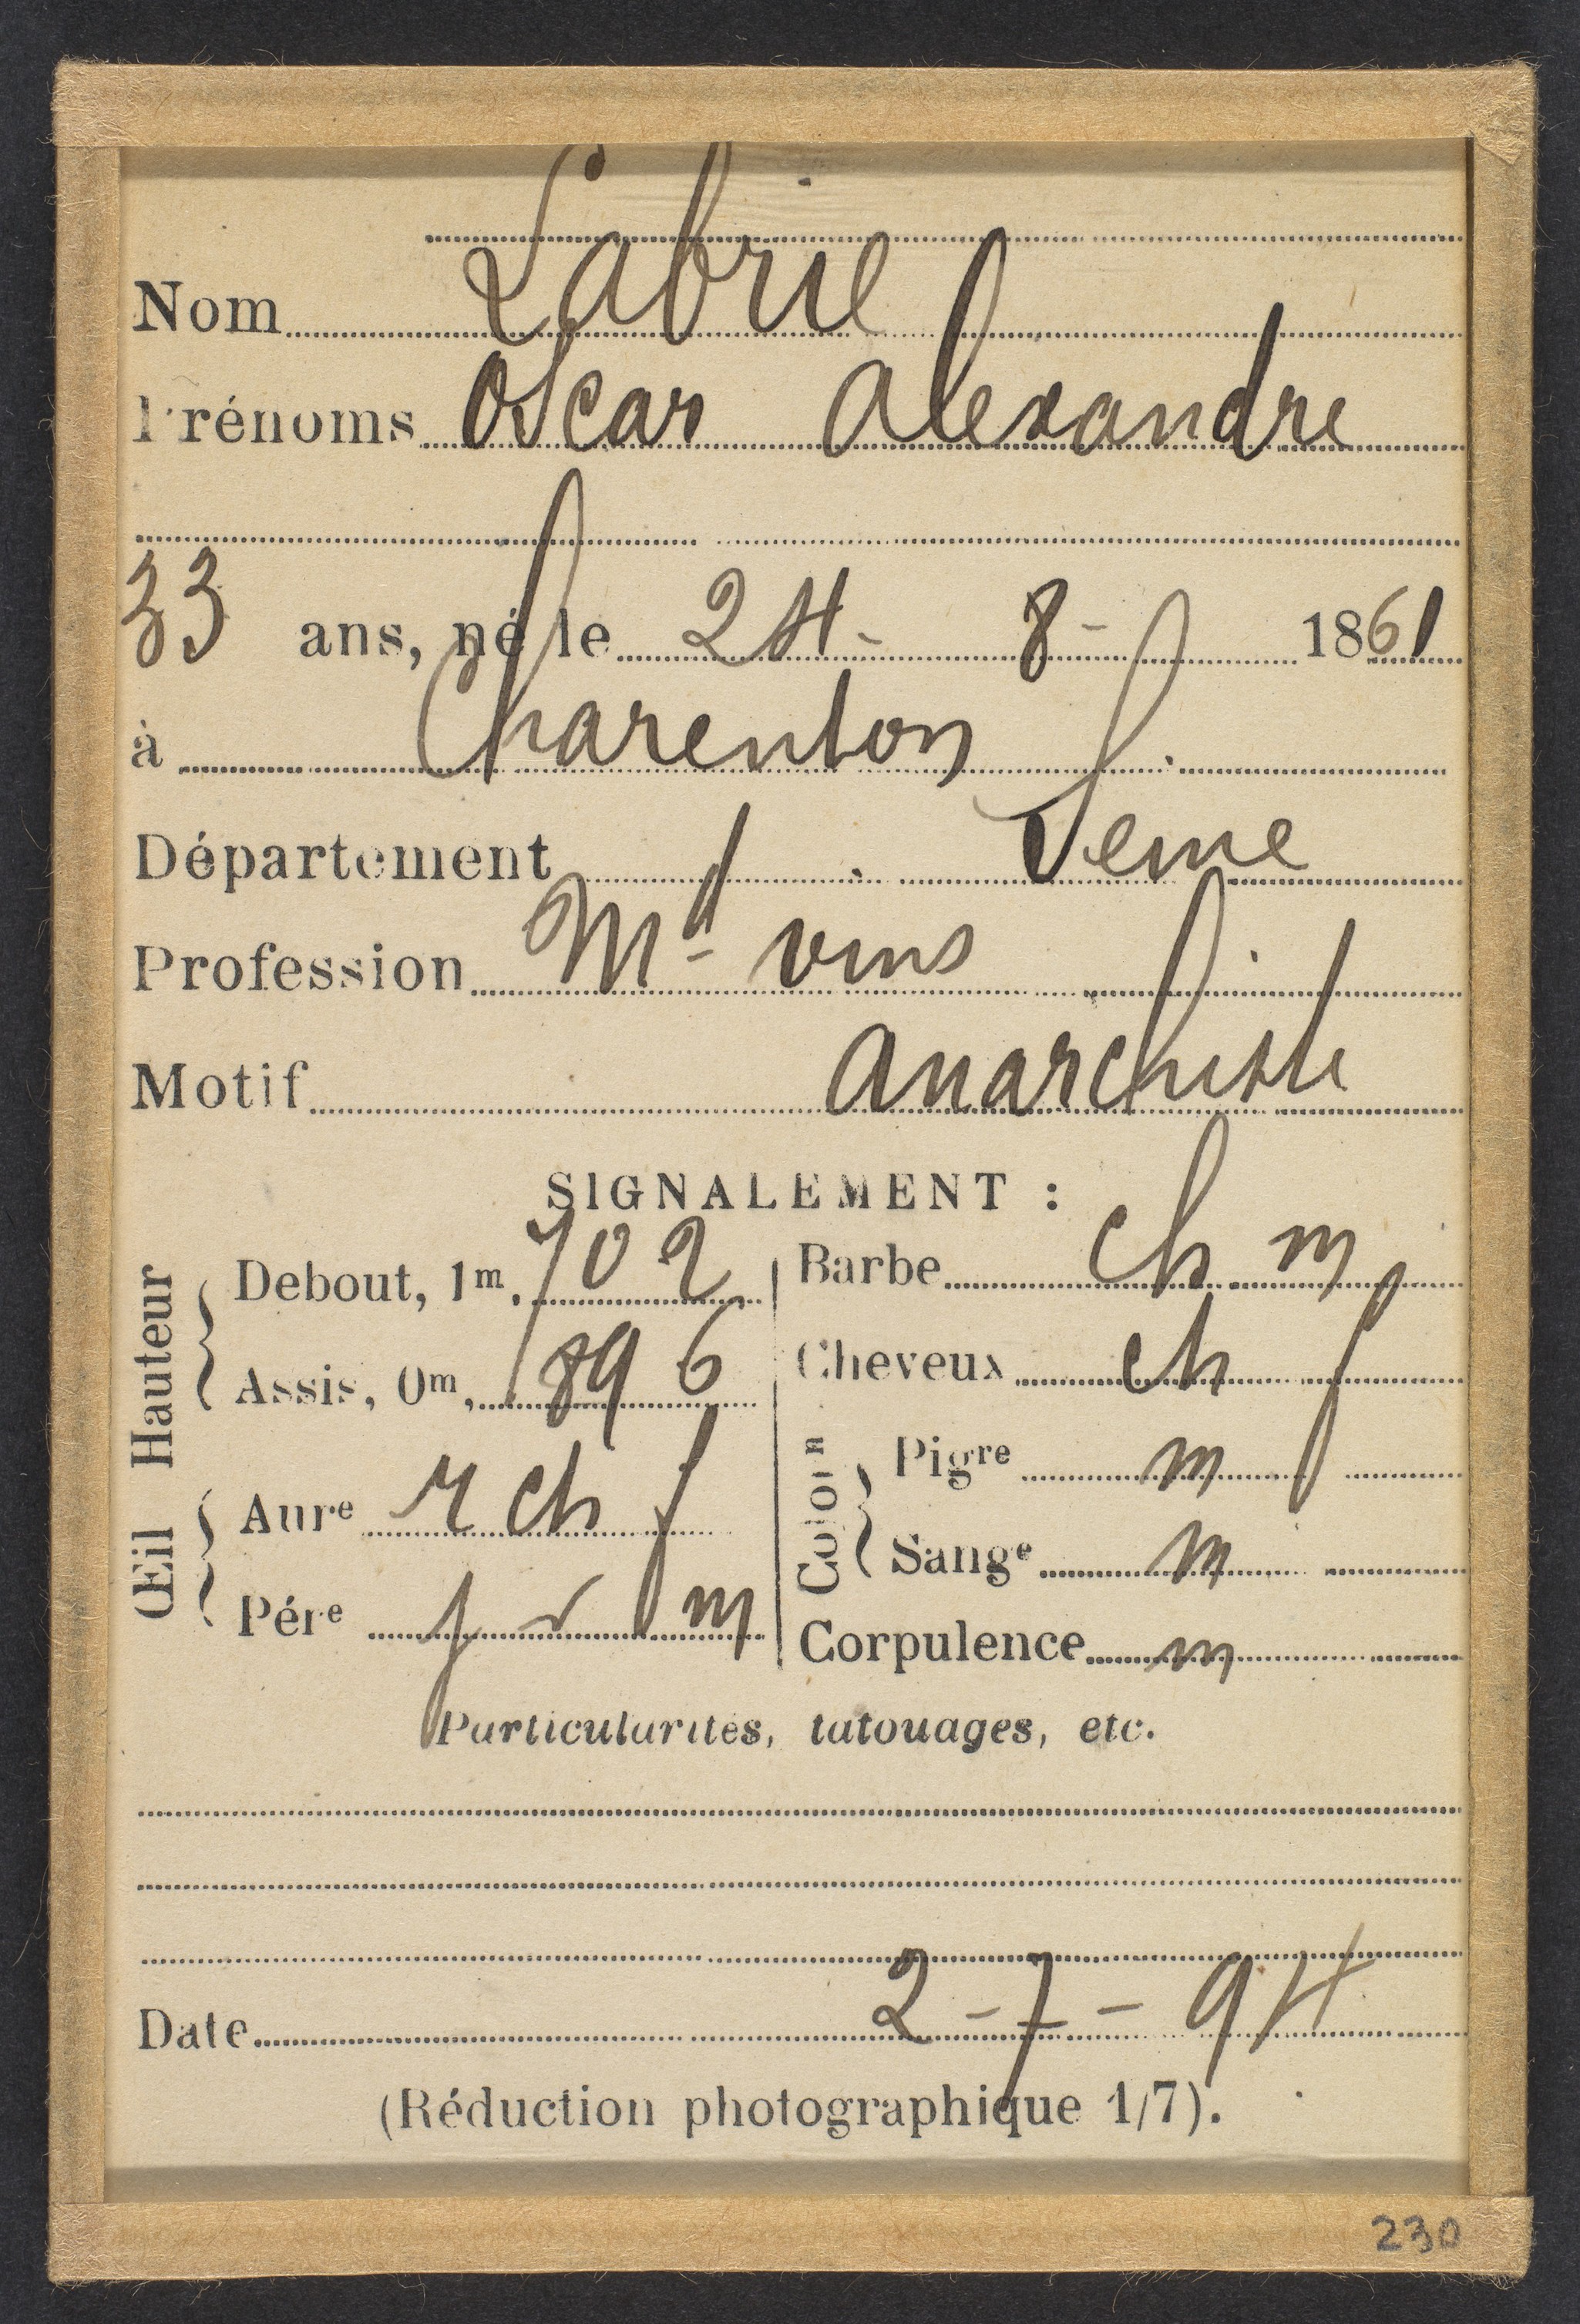 Nom Labrie
Prénoms Oscar Alexandre
33 ans, né le 24- 8- 1861
à Charenton
Département Seine
Profession Md vins
Motif Anarchiste
SIGNALEMENT :
Hauteur
Debout, 1m, 702
Assis, 0m, 896
Œil
Aure r ch f
Pére m
Barbe ch m
Cheveux ch f
Colon
Pigre m
Sange m
Corpulence m
Particularités, tatouages, etc.
Date 2-7-94
(Réduction photographique 1/7).
230